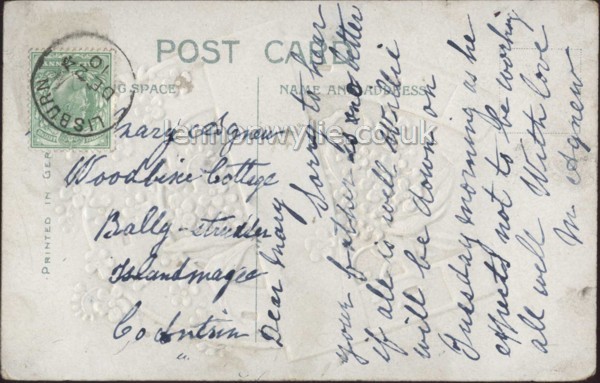 POST CARD
NG SPACE
NAME AND ADDRESS
PRINTED IN GER
LISBURN
DE 24
lennonwylie.co.uk
Mary Agnew
Woodbine Cottage
Bally-strudder
Islandmagee
Co Antrim
Dear Mary
Sorry to hear
your father is no better
if all is well Willie
will be down on
Tuesday morning as he
expects not to be working
all well With love
M Agnew